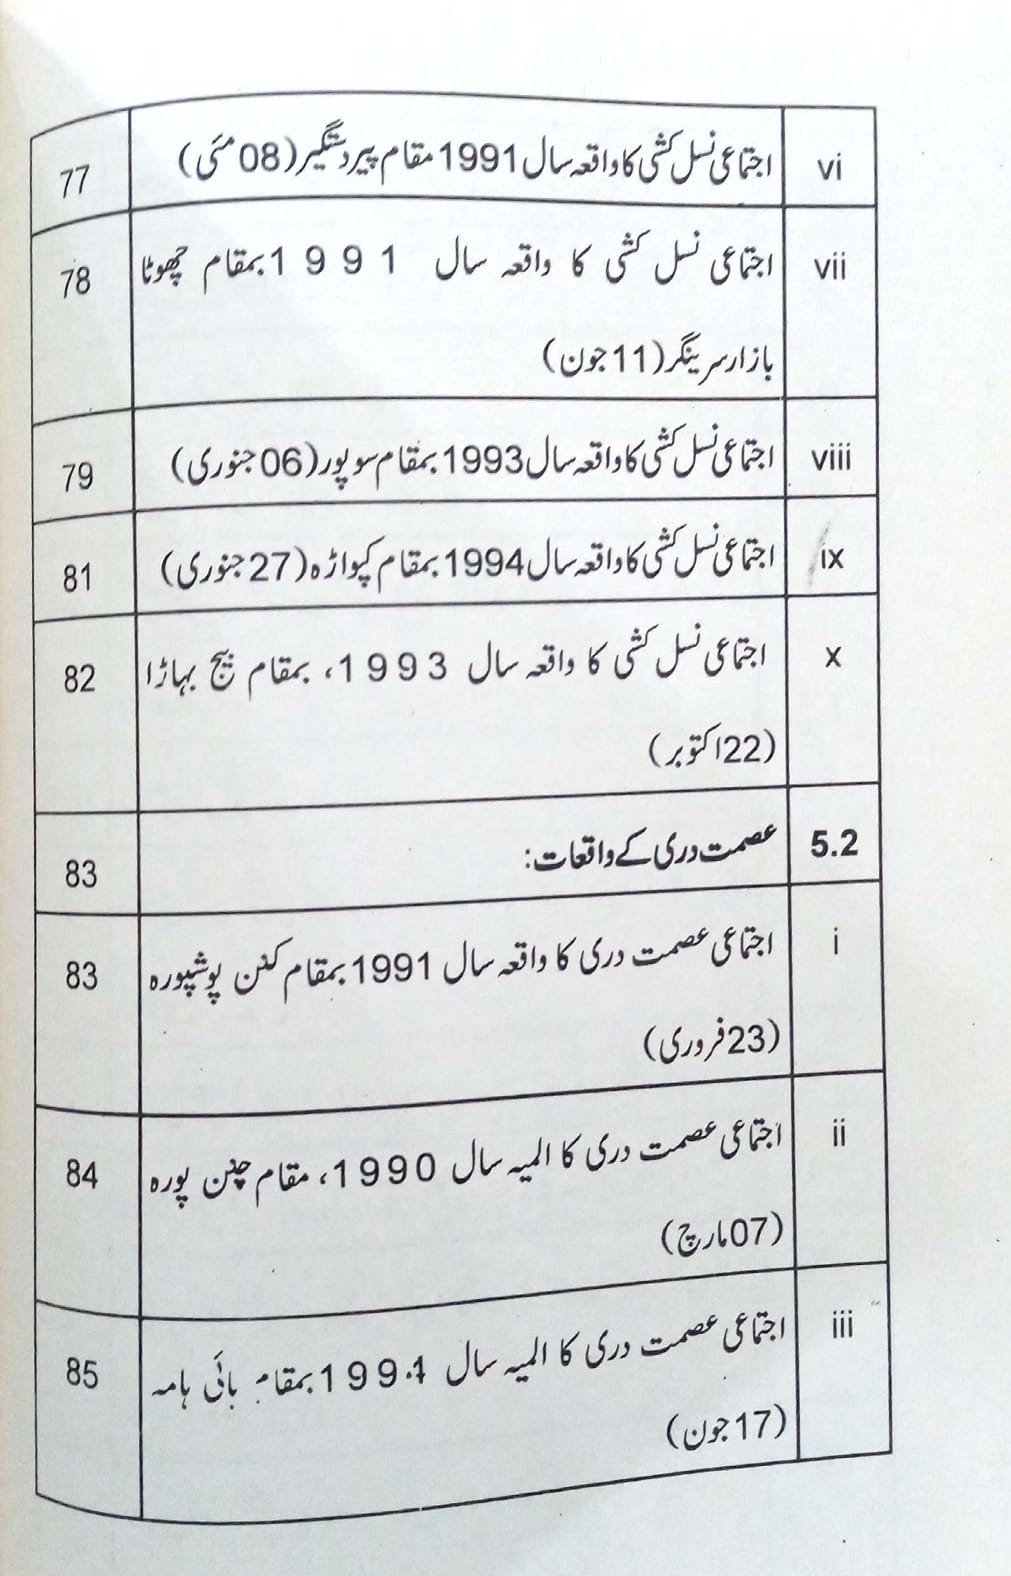 vi اجتماعی نسل کشی کا واقعہ سال 1991 مقام پیر دستگیر (08 مئی) 77
vii اجتماعی نسل کشی کا واقعہ سال 1991 بمقام چھوٹا 78
بازار سرینگر (11 جون)
viii اجتماعی نسل کشی کا واقعہ سال 1993 بمقام سوپور (06 جنوری) 79
ix اجتماعی نسل کشی کا واقعہ سال 1994 بمقام کپواڑہ (27 جنوری) 81
x اجتماعی نسل کشی کا واقعہ سال 1993، بمقام بیج بہاڑا 82
(22 اکتوبر)
5.2 عصمت دری کے واقعات: 83
i اجتماعی عصمت دری کا واقعہ سال 1991 بمقام کنن پوشپورہ 83
(23 فروری)
ii اجتماعی عصمت دری کا المیہ سال 1990، مقام چنن پورہ 84
(07 مارچ)
iii اجتماعی عصمت دری کا المیہ سال 1994 بمقام بائی ہامہ 85
(17 جون)